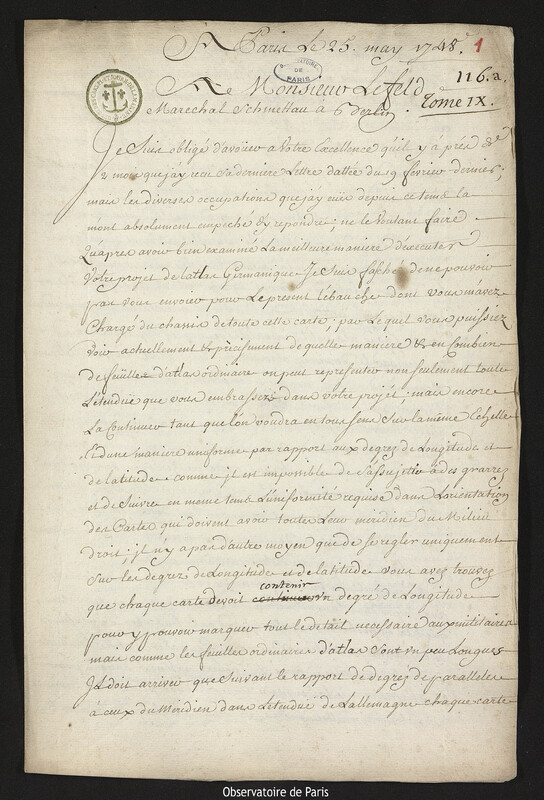 A Paris Le 25. may 1748. 1
OBSERVATOIRE DE PARIS
116.a.
A Monsieur Lefeld
Tome IX.
Marechal Schmettau à Berlin
Je Suis obligé d'avoüer a Votre Excellence quil y à prés de
2 mois que jay reçu Sa derniere Lettre dattée du 9 fevrier dernier;
mais les diverses occupations que jay eües depuis ce tems la
mont absolument empeché dy repondre; ne le Voulant faire
Qu'apres avoir bien examiné La meilleure maniere d'executer
Votre projet de l'atlas Germanique. Je Suis faché de ne pouvoir
pas vous envoier pour Le present l'ébauche dont vous m'avez
Chargé du chassis de toute cette carte; par Le quel vous puissiez
voir actuellement & précisement de quelle maniere & en Combien
de feüilles d'atlas ordinaire on peut representer non seulement toute
L'etendüe que vous embrassez dans votre projet; mais encore
La Continuer tant que l'on voudra en tous sens Sur la même Echelle
& d'une maniere uniforme par rapport aux degrez de Longitude et
de latitude. comme jl est impossible de S'assujettir à des quarrez
et de Suivre en meme tems L'uniformité requise dans L'orientation
des Cartes qui doivent avoir toutes Leur meridien du Milieu
Droit; jl n'y a pas d'autre moyen que de se regler uniquement
Sur les degrez de Longitude et de latitude vous avez trouvez
contenir
que chaque carte devoit continuer vn degré de Longitude
pour y pouvoir marquer tout le detail necessaire aux militaires
mais comme les feüilles ordinaires d'atlas Sont vn peu Longues
Jl doit arriver que Suivant le rapport de degrez de paralleles
à ceux du Méridien dans L'etendüe de L'allemagne chaque carte
Observatoire de Paris